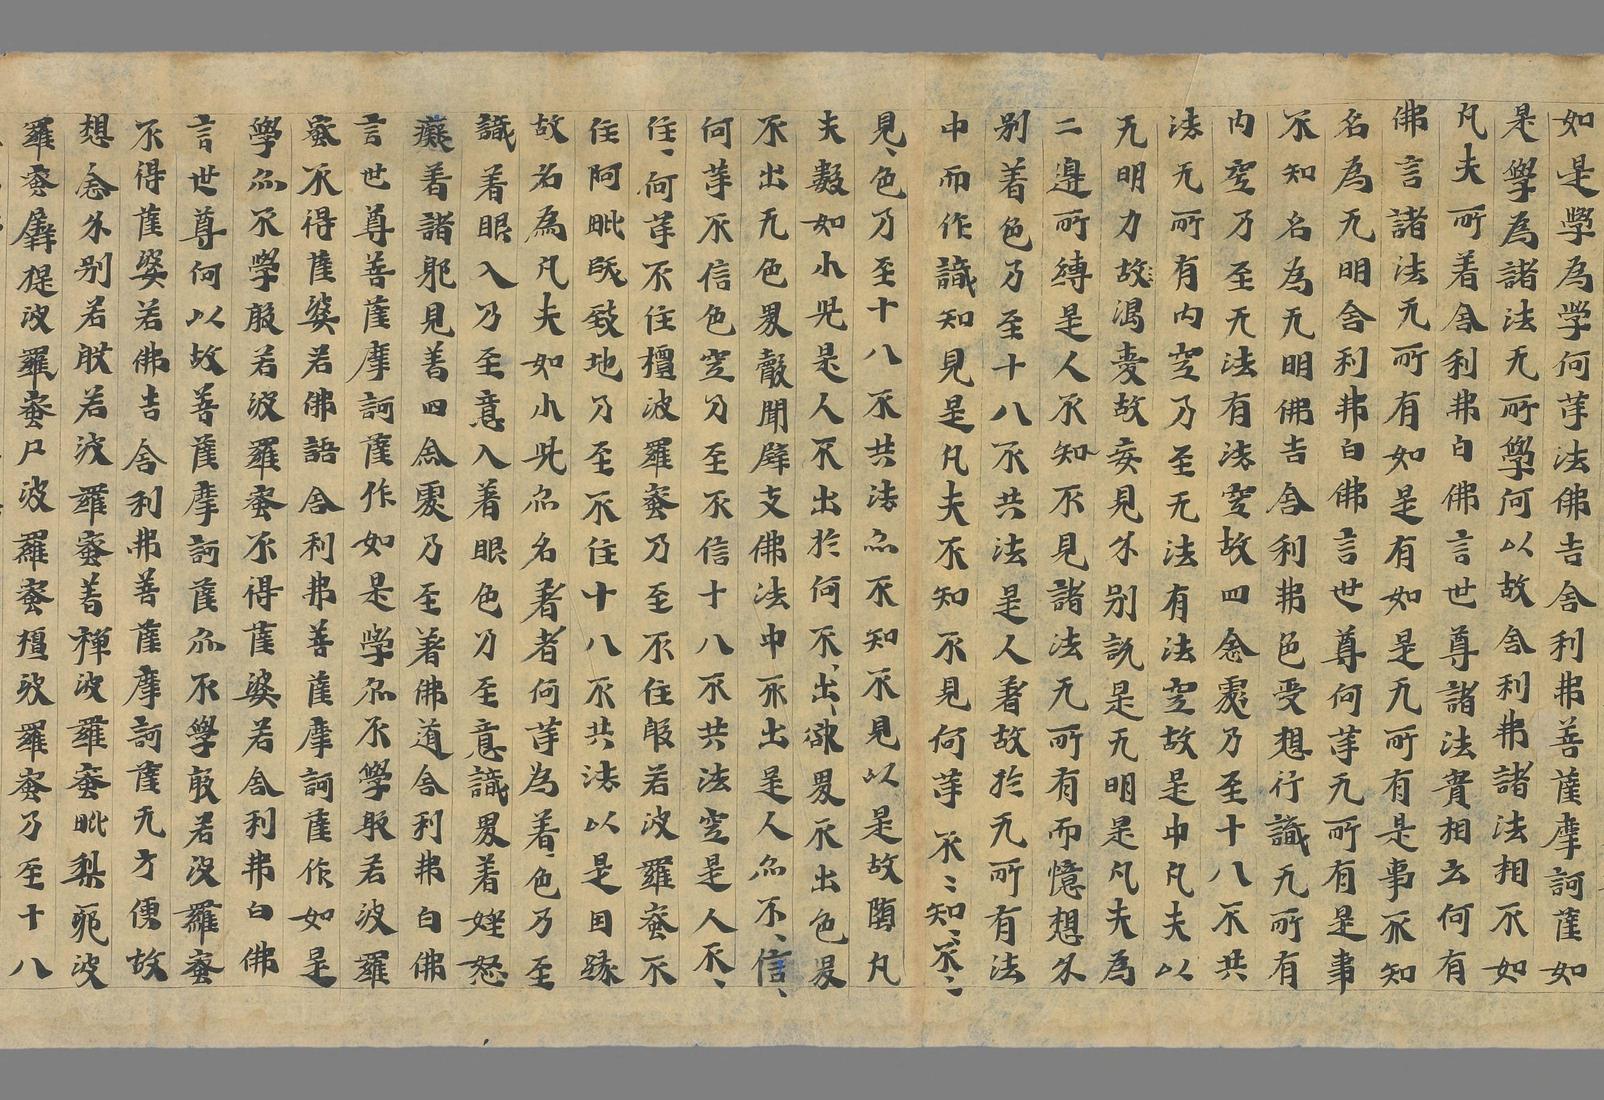 如是學為學何等法佛告舍利弗菩薩摩訶薩如
是學為諸法无所學何以故舍利弗諸法相不如
凡夫所著舍利弗白佛言世尊諸法實相云何有
佛言諸法无所有如是有如是无所有是事不知
名為无明舍利弗白佛言世尊何等无所有是事
不知名為无明佛告舍利弗色受想行識无所有
内空乃至无法有法空故四念處乃至十八不共
法无所有内空乃至无法有法空故是中凡夫以
无明力故渴愛故妄見分別說是无明是凡夫為
二邊所縛是人不知不見諸法无所有而憶想分
別著色乃至十八不共法是人著故於无所有法
中而作識知見是凡夫不知不見何等不〻知、不〻
見、色乃至十八不共法亦不知不見以是故墮凡
夫數如小兒是人不出於何不、出、欲界不出色界
不出无色界聲聞辟支佛法中不出是人亦不、信、
何等不信色空乃至不信十八不共法空是人不、
住、何等不住檀波羅蜜乃至不住般若波羅蜜不
住阿毗跋致地乃至不住十八不共法以是因緣
故名為凡夫如小兒亦名著者何等為著、色乃至
識著眼入乃至意入著眼色乃至意識界著婬怒
癡著諸邪見著四念處乃至著佛道舍利弗白佛
言世尊菩薩摩訶薩作如是學亦不學般若波羅
蜜不得薩婆若佛語舍利弗菩薩摩訶薩作如是
學亦不學般若波羅蜜不得薩婆若舍利弗白佛
言世尊何以故菩薩摩訶薩亦不學般若波羅蜜
不得薩婆若佛告舍利弗菩薩摩訶薩无方便故
想念分別著般若波羅蜜著禪波羅蜜毗梨耶波
羅蜜羼提波羅蜜尸波羅蜜檀波羅蜜乃至十八